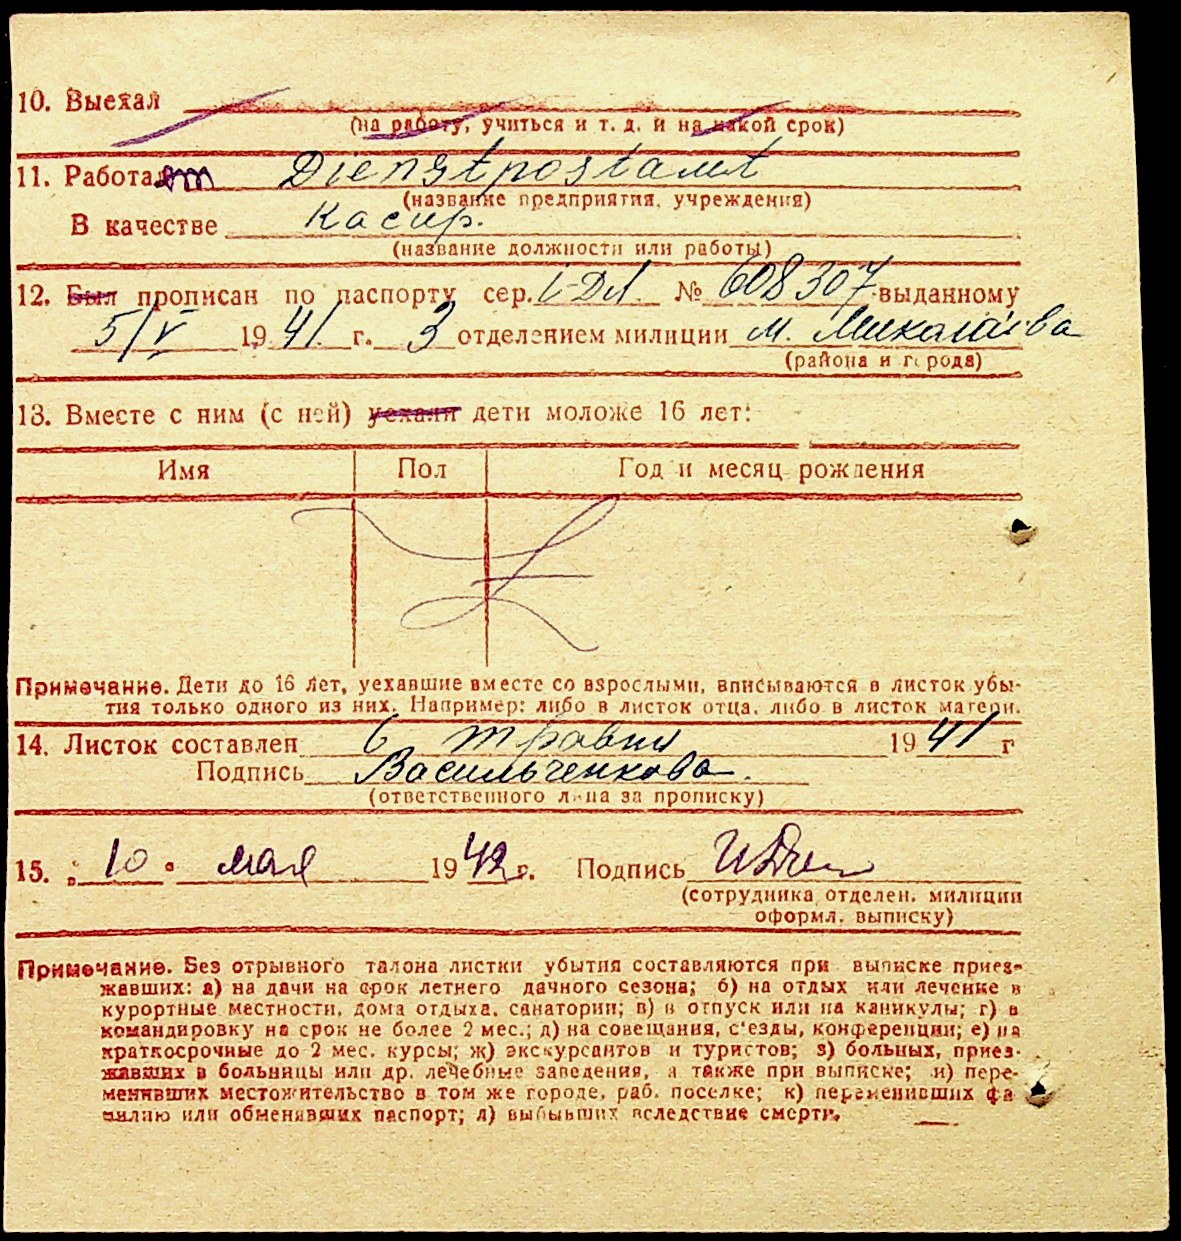 10. Выехал
(на работу, учиться и т. д. и на какой срок)
11. Работает Dienstpostamt
(название предприятия, учреждения)
В качестве касир.
(название должности или работы)
12. Был прописан по паспорту сер. № 608307 выданному
5/V 1941 г. 3 отделением милиции м. Миколаєва
(района и города)
13. Вместе с ним (с ней) уехали дети моложе 16 лет:
Имя Пол Год и месяц рождения
Примечание. Дети до 16 лет, уехавшие вместе со взрослыми, вписываются в листок убы-
тия только одного из них. Например: либо в листок отца, либо в листок матери.
14. Листок составлен 6 травня 1941 г
Подпись Васильченкова.
(ответственного лица за прописку)
15. „10" мая 1942 г. Подпись
(сотрудника отделен. милиции
оформл. выписку)
Примечание. Без отрывного талона листки убытия составляются при выписке приез-
жавших: а) на дачи на срок летнего дачного сезона; б) на отдых или лечение в
курортные местности, дома отдыха, санатории; в) в отпуск или на каникулы; г) в
командировку на срок не более 2 мес.; д) на совещания, с'езды, конференции; е) на
краткосрочные до 2 мес. курсы; ж) экскурсантов и туристов; з) больных, приез-
жавших в больницы или др. лечебные заведения, а также при выписке; и) пере-
менивших местожительство в том же городе, раб. поселке; к) переменивших фа
милию или обменявших паспорт; л) выбывших вследствие смерти.